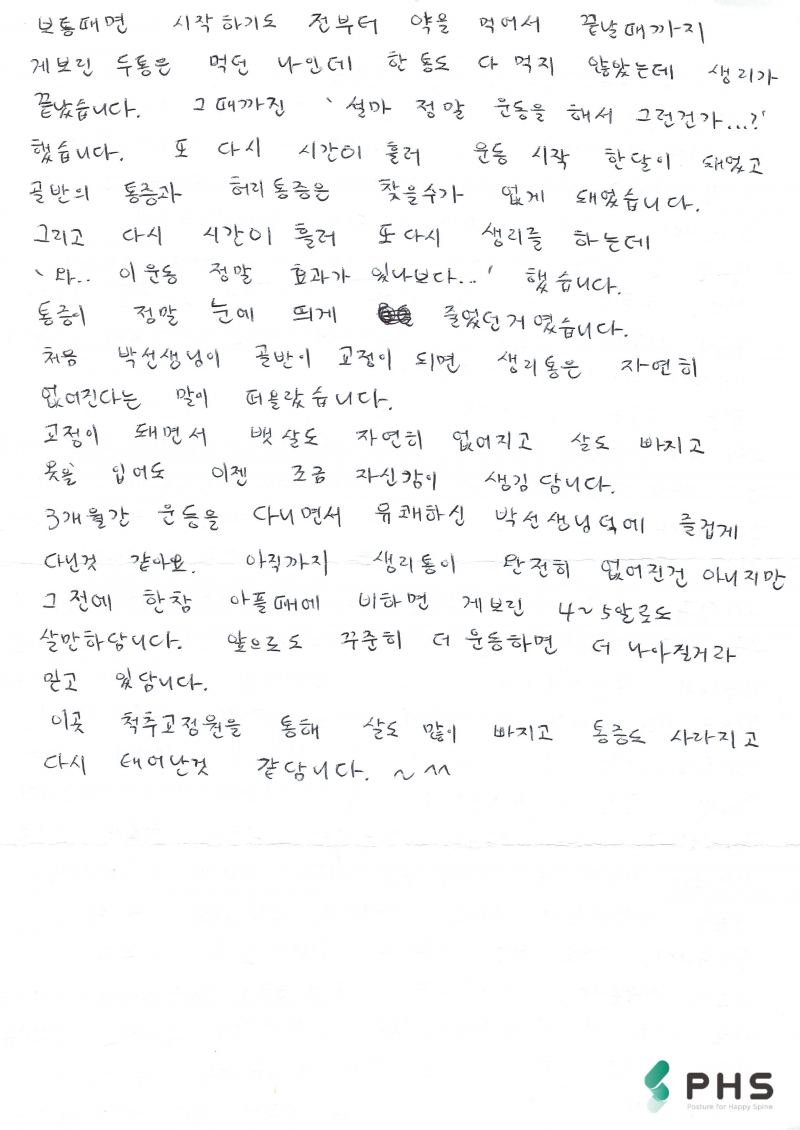 보통때면 시작하기도 전부터 약을 먹어서 끝날때까지
게보린 두통은 먹던 나인데 한통도 다 먹지 않았는데 생리가
끝났습니다. 그때까진 '설마 정말 운동을 해서 그런건가...?'
했습니다. 또 다시 시간이 흘러 운동 시작 한달이 돼었고
골반의 통증과 허리통증은 찾을수가 없게 돼었습니다.
그리고 다시 시간이 흘러 또다시 생리를 하는데
'와.. 이운동 정말 효과가 있나보다...' 했습니다.
통증이 정말 눈에 띄게 줄었던거였습니다.
처음 박선생님이 골반이 교정이 되면 생리통은 자연히
없어진다는 말이 떠올랐습니다.
교정이 돼면서 뱃살도 자연히 없어지고 살도 빠지고
옷을 입어도 이젠 조금 자신감이 생김답니다.
3개월간 운동을 다니면서 유쾌하신 박선생님덕에 즐겁게
다닌것 같아요. 아직까지 생리통이 완전히 없어진건 아니지만
그 전에 한참 아플때에 비하면 게보린 4~5알로도
살만하답니다. 앞으로도 꾸준히 더 운동하면 더 나아질거라
믿고 있답니다.
이곳 척추교정원을 통해 살도 많이 빠지고 통증도 사라지고
다시 태어난것 같답니다. ~^^
PHS
Posture for Happy Spine